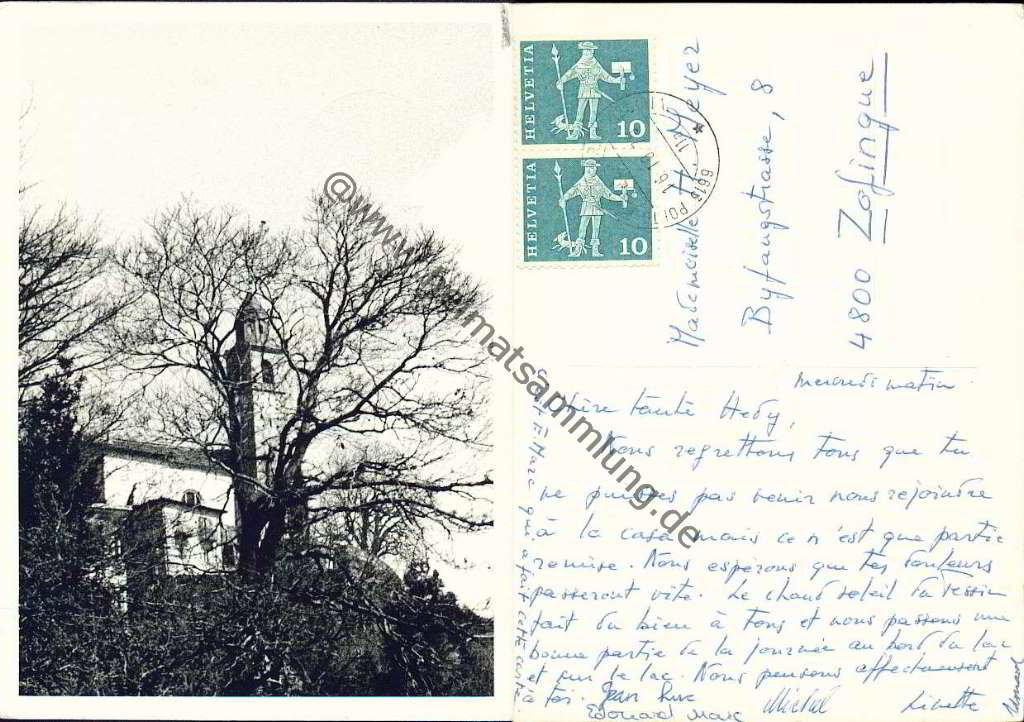 HELVETIA
10
HELVETIA
10
6616
Mademoiselle H. Meyer
Byfangstrasse, 8
4800 Zofingue
Mercredi matin
Chère tante Hedy,
Nous regrettons tous que tu
ne puisses pas venir nous rejoindre
à la casa mais ce n'est que partie
remise. Nous espérons que tes douleurs
passeront vite. Le chaud soleil du Tessin
fait du bien à tous et nous passons une
bonne partie de la journée au bord du lac
et sur le lac. Nous pensons affectueusement
à toi. Jean Luc
Michel
Linette
Edouard Marc
qui a fait cette carte
©www.heimatsammlung.de